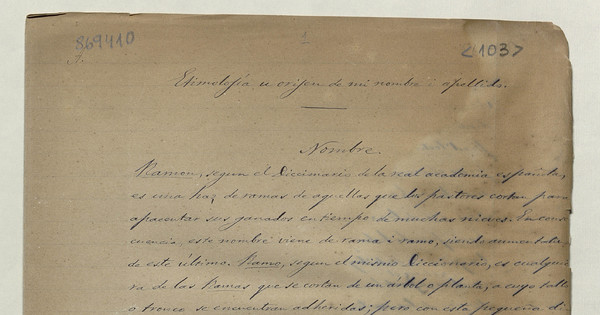 869410
1
21037
Etimolojía u orijen de mi nombre i apellido.
Nombre.
Ramon, segun el Diccionario de la real academia española,
es una haz de ramas de aquellas que los pastores cortan para
apacentar sus ganados en tiempo de muchas nieves. En conse
cuencia, este nombre viene de rama i ramo, siendo aumentativo
de este último. Ramo, segun el mismo Diccionario, es cualquie
ra de las Ramas que se cortan de un árbol o planta, a cuyo tallo
o tronco se encuentran adheridas; pero con esta pequeña di